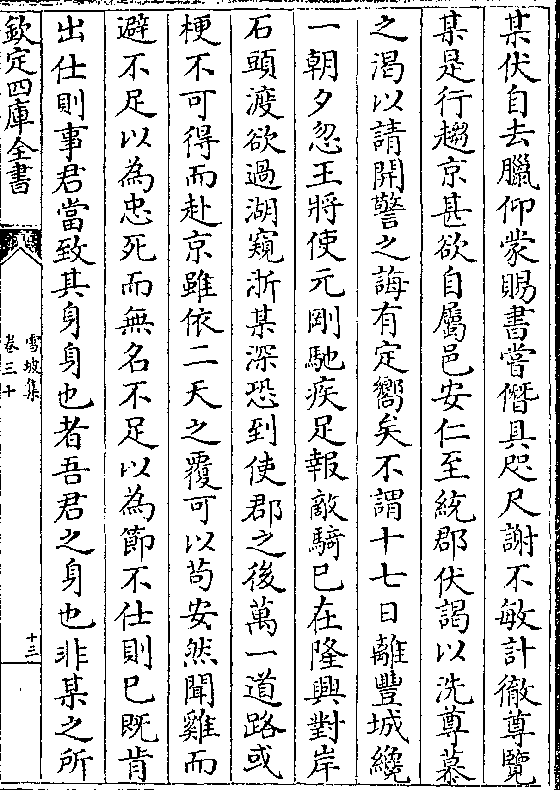 某伏自去臘仰蒙賜書嘗僭具咫尺謝不敏計徹尊覽
某是行趨京甚欲自屬邑安仁至統郡伏謁以洗尊慕
之渴以請開警之誨有定嚮矣不謂十七日離豐城纔
一朝夕忽王將使元剛馳疾足報敵騎已在隆興對岸
石頭渡欲過湖窺浙某深恐到使郡之後萬一道路或
梗不可得而赴京雖依二天之覆可以苟安然聞雞而
避不足以為忠死而無名不足以為節不仕則已既肯
出仕則事君當致其身身也者吾君之身也非某之所
欽定四庫全書
雪坡集
卷三十
十三